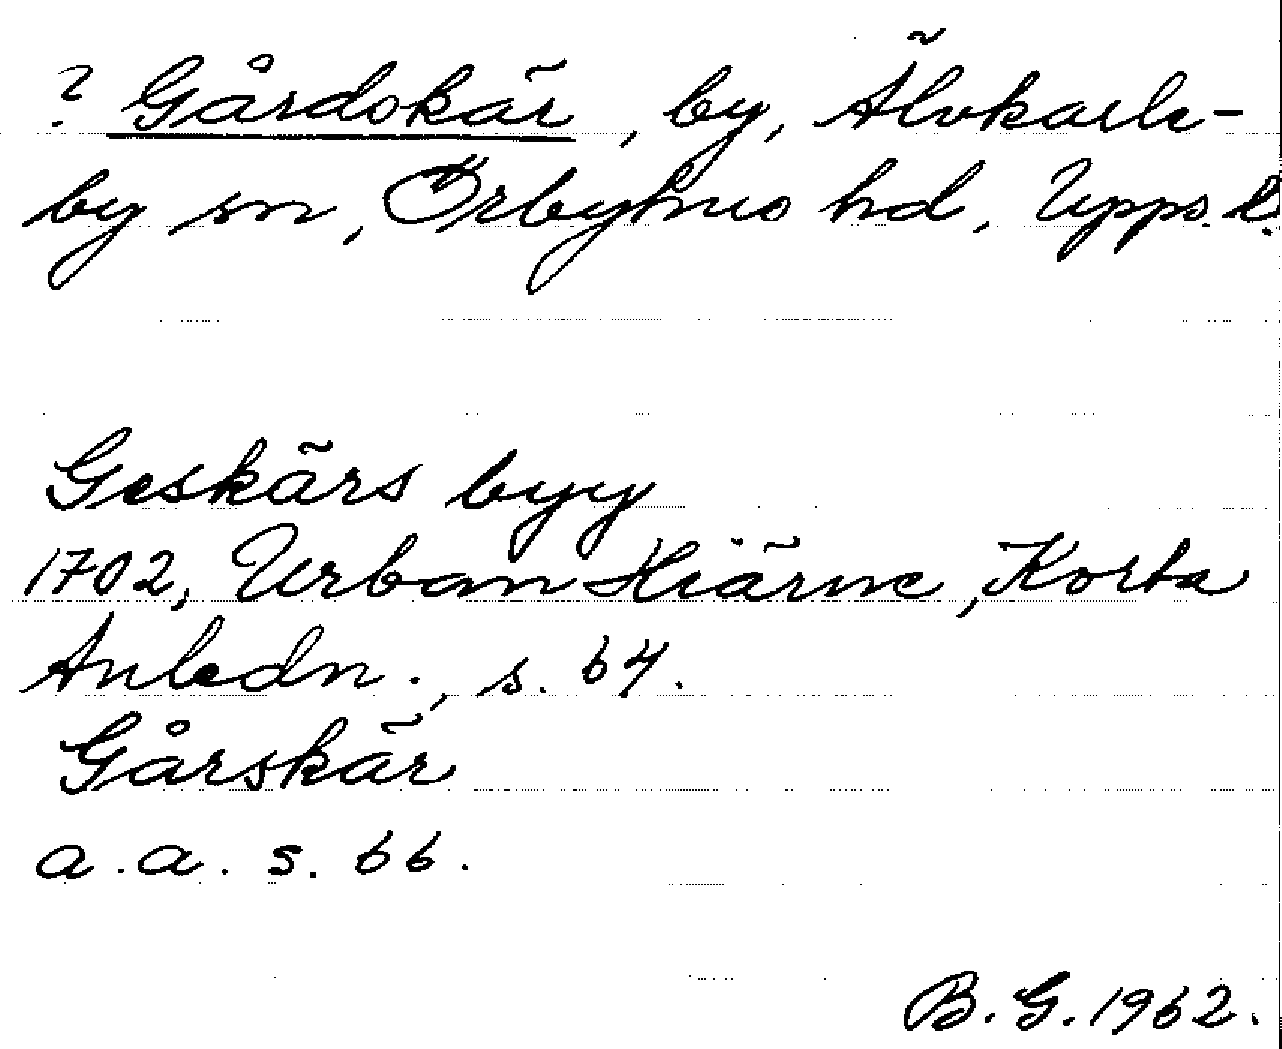 ? Gårdskär, by, Älvkarle-
by sn, Örbyhus hd, Upps. l.
Geskärs byy
1702, Urban Hiärne, Korta
Anledn., s. 64.
Gårskär
a.a. s. 66.
B.G. 1962.